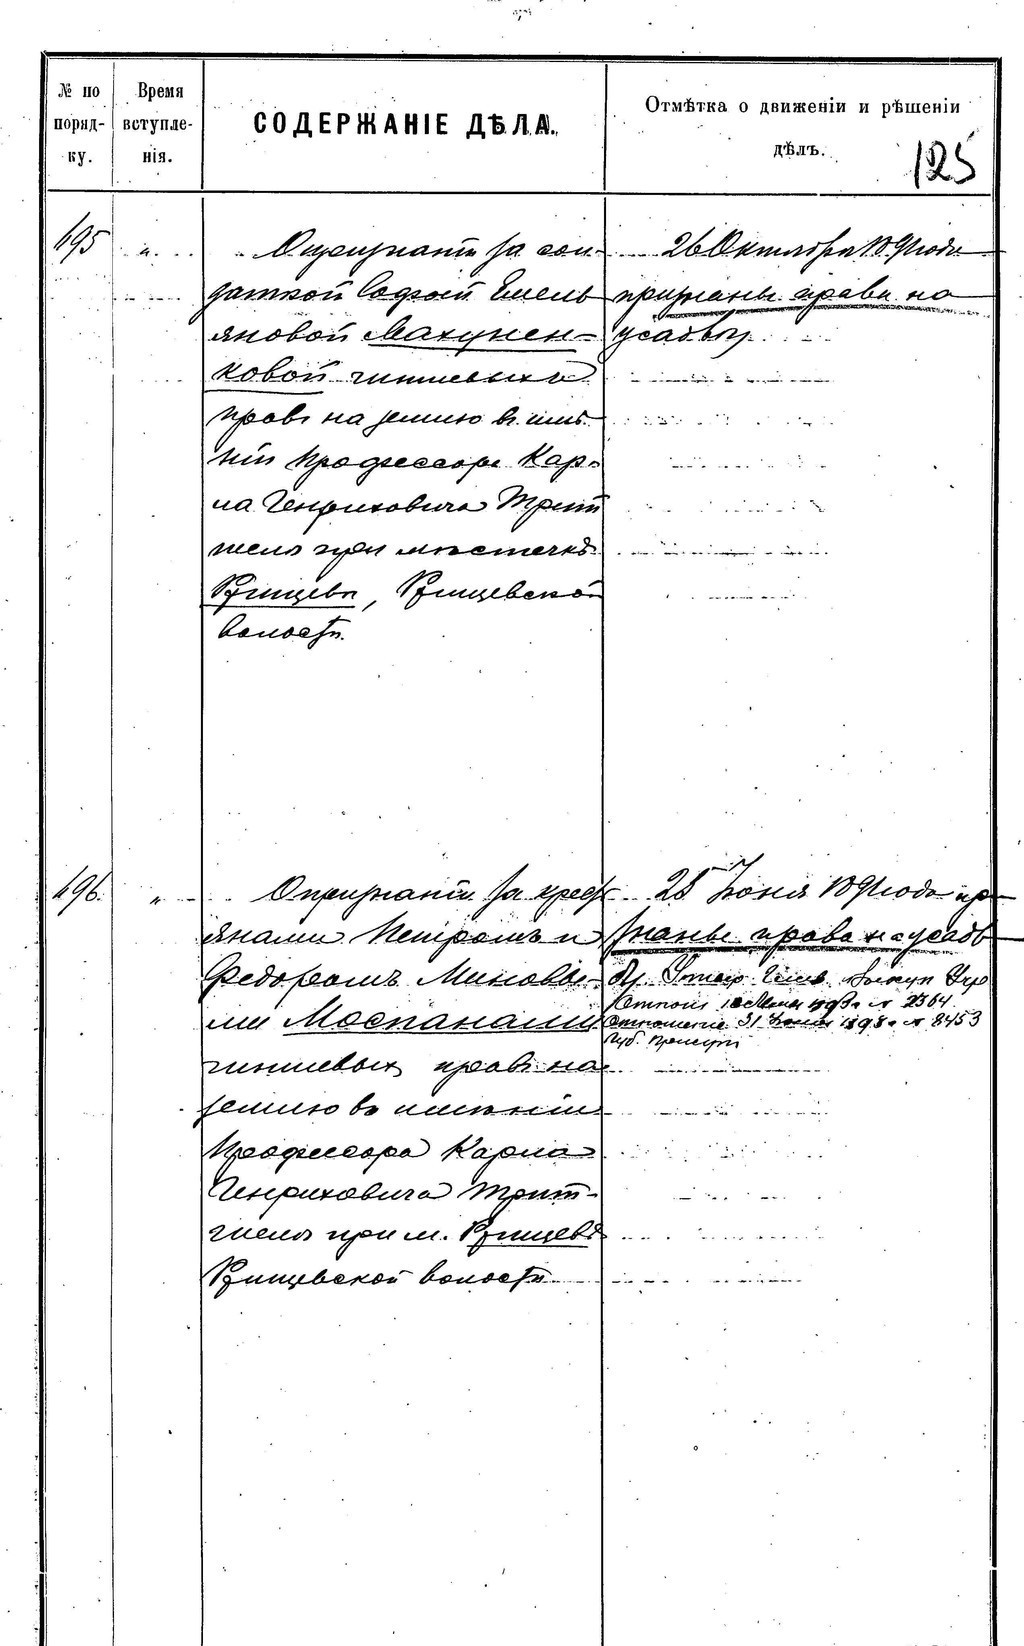 № по
поряд-
ку.
Время
вступле-
нія.
СОДЕРЖАНІЕ ДѢЛА.
Отмѣтка о движеніи и рѣшеніи
дѣлъ.
125
195
О признаніи за сол-
даткой Софьей Емель
яновой Махинен-
ковой чиншевыхъ
правъ на землю въ имѣ-
ніи Профессора Кар-
ла Генриховича Трит
шеля при мѣстечкѣ
Ржищевѣ, Ржищевской
волости.
26 Октября 1891 года
признаны права на
усадьбу.
196.
О признаніи за крест
янами Петромъ и
Федоромъ Миновы-
ми Моспанами
чиншевыхъ правъ на
землю въ имѣніи
Профессора Карла
Генриховича Трит-
шеля при м. Ржищевѣ
Ржищевской волости
28 Іюня 1891 года при
знаны права на усадь
бу.
1893 г. № 2364
Отношеніе 31 1893 г. № 8453
Губ. Присут